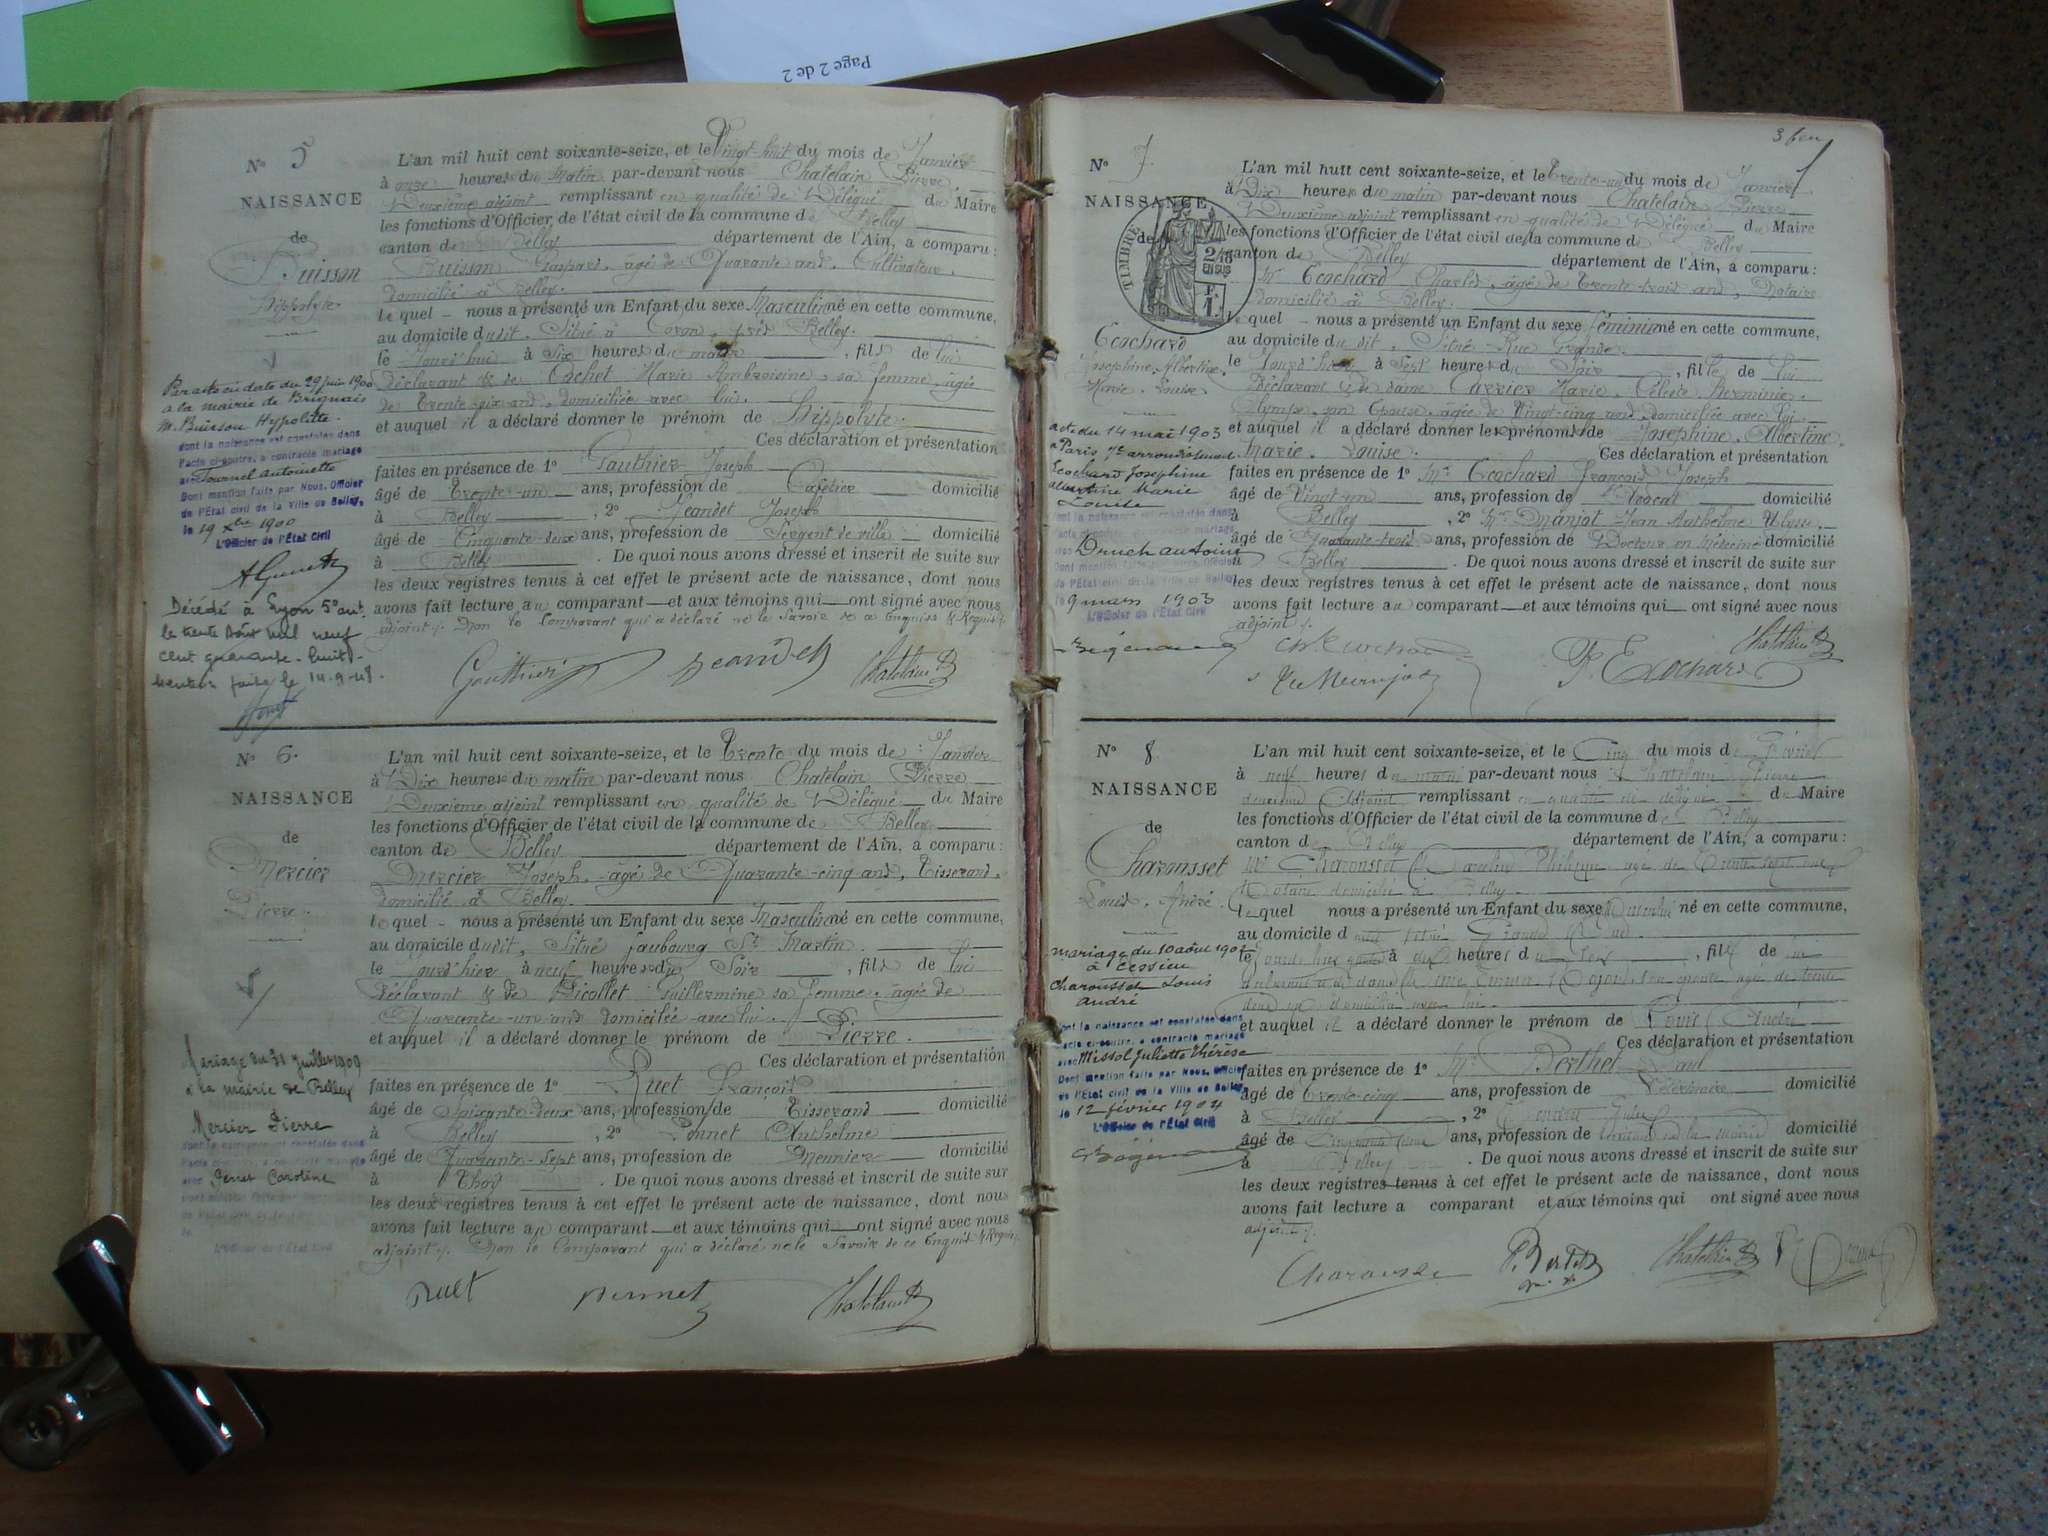 Page 2 de 2
N° 5
NAISSANCE
de
Buisson
Hippolyte
L'an mil huit cent soixante-seize, et le Vingt-huit du mois de Janvier
à onze heures du Matin par-devant nous Chatelain Pierre
Deuxième adjoint remplissant en qualité de Délégué du Maire
les fonctions d'Officier de l'état civil de la commune de Belley
canton de Belley département de l'Ain, a comparu:
Buisson Gaspard, âgé de Quarante ans, Cultivateur,
domicilié à Belley.
lequel nous a présenté un Enfant du sexe Masculin né en cette commune,
au domicile dudit, Situé à Coron, près Belley.
le Jourd'hui à Six heures du matin, fils de lui
déclarant & de Cochet Marie Ambroisine, sa femme, âgée
de Trente-six ans, domiciliée avec lui.
et auquel il a déclaré donner le prénom de Hippolyte.
Ces déclaration et présentation
faites en présence de 1° Gauthier Joseph
âgé de Trente-un ans, profession de Cafetier domicilié
à Belley, 2° Jeandet Joseph
âgé de Cinquante-deux ans, profession de Sergent de ville domicilié
à Belley. De quoi nous avons dressé et inscrit de suite sur
les deux registres tenus à cet effet le présent acte de naissance, dont nous
avons fait lecture au comparant et aux témoins qui ont signé avec nous
adjoint. Non le Comparant qui a déclaré ne le Savoir de ce Enquis & Requis
Par acte en date du 29 juin 1900
a la mairie de Brignais
M. Buisson Hypolitte
dont la naissance est constatée dans
l'acte ci-contre, a contracté mariage
avec Tournel Antoinette
Dont mention faite par Nous, Officier
de l'État civil de la Ville de Belley,
le 19 Xbre 1900
L'Officier de l'État Civil
Décédé à Lyon 5e arrt
le trente Août mil neuf
cent quarante-huit.
Mention faite le 14.9.48.
Gauthier Jeandet Chatelain P
N° 6.
NAISSANCE
de
Mercier
Pierre.
L'an mil huit cent soixante-seize, et le Trente du mois de Janvier
à Dix heures du matin par-devant nous Chatelain Pierre
Deuxième adjoint remplissant en qualité de Délégué du Maire
les fonctions d'Officier de l'état civil de la commune de Belley
canton de Belley département de l'Ain, a comparu:
Mercier Joseph, âgé de Quarante-cinq ans, Tisserand,
domicilié à Belley
lequel nous a présenté un Enfant du sexe Masculin né en cette commune,
au domicile dudit, Situé faubourg St Martin.
le jourd'hier à neuf heures du Soir, fils de lui
déclarant & de Picollet Guillermine sa femme, âgée de
Quarante-un ans domiciliée avec lui.
et auquel il a déclaré donner le prénom de Pierre.
Ces déclaration et présentation
faites en présence de 1° Ruet François
âgé de Soixante-deux ans, profession de Tisserand domicilié
à Belley, 2° Ponnet Anthelme
âgé de Quarante-sept ans, profession de Meunier domicilié
à Thoys. De quoi nous avons dressé et inscrit de suite sur
les deux registres tenus à cet effet le présent acte de naissance, dont nous
avons fait lecture au comparant et aux témoins qui ont signé avec nous
adjoint. Non le Comparant qui a déclaré ne le Savoir de ce Enquis & Requis
Mariage du 31 juillet 1909
à la mairie de Belley
Mercier Pierre
dont la naissance est constatée dans
l'acte ci-contre, a contracté mariage
avec Perret Caroline
L'Officier de l'État Civil
Ruet Chatelain P
3 feu
N° 7.
NAISSANCE
de
TIMBRE
2/10 EN SUS
F. 1.
Ecochard
Josephine, Albertine,
Marie, Louise.
L'an mil huit cent soixante-seize, et le Trente-un du mois de Janvier
à Dix heures du matin par-devant nous Chatelain Pierre
Deuxième adjoint remplissant en qualité de Délégué du Maire
les fonctions d'Officier de l'état civil de la commune de Belley
canton de Belley département de l'Ain, a comparu:
Mr Ecochard Charles, âgé de Trente-trois ans, Notaire
domicilié à Belley.
lequel nous a présenté un Enfant du sexe féminin né en cette commune,
au domicile du dit, Situé Rue Grande.
le Jourd'hier à Sept heures du Soir, fille de lui
Déclarant & de dame Carrier Marie, Céleste Herminie,
Olympe, son Epouse, âgée de Vingt-cinq ans, domiciliée avec lui.
et auquel il a déclaré donner les prénoms de Josephine, Albertine,
Marie, Louise. Ces déclaration et présentation
faites en présence de 1° Mr Ecochard François Joseph
âgé de Vingt-un ans, profession de Avocat domicilié
à Belley, 2° Mr Manjot Jean Anthelme Ulysse,
âgé de Quarante-trois ans, profession de Docteur en Médecine domicilié
à Belley. De quoi nous avons dressé et inscrit de suite sur
les deux registres tenus à cet effet le présent acte de naissance, dont nous
avons fait lecture au comparant et aux témoins qui ont signé avec nous
adjoint.
acte du 14 mai 1903
a Paris 7e arrondissement
Ecochard Josephine
Albertine Marie
Louise
dont la naissance est constatée dans
l'acte ci-contre, a contracté mariage
avec Druch Antoine
Dont mention faite par Nous, Officier
de l'État civil de la Ville de Belley,
le 9 mars 1903
L'Officier de l'État Civil
F. Ecochard Chatelain P
N° 8
NAISSANCE
de
Charousset
Louis, André.
L'an mil huit cent soixante-seize, et le Cinq du mois de Février
à neuf heures du matin par-devant nous Chatelain Pierre
deuxième Adjoint remplissant en qualité de délégué du Maire
les fonctions d'Officier de l'état civil de la commune de Belley
canton de Belley département de l'Ain, a comparu:
Mr Charousset Philippe âgé de Trente sept ans
Notaire domicilié à Belley.
lequel nous a présenté un Enfant du sexe Masculin né en cette commune,
au domicile du dit situé Grande Rue.
le jourd'hier à heures du Soir, fils de lui
déclarant & de dame son épouse âgée de trente
deux ans domiciliée avec lui.
et auquel il a déclaré donner le prénom de Louis André
Ces déclaration et présentation
faites en présence de 1° Mr Berthet Paul
âgé de Trente-cinq ans, profession de Vétérinaire domicilié
à Belley, 2°
âgé de Cinquante ans, profession de de la mairie domicilié
à Belley. De quoi nous avons dressé et inscrit de suite sur
les deux registres tenus à cet effet le présent acte de naissance, dont nous
avons fait lecture a comparant et aux témoins qui ont signé avec nous
adjoint.
mariage du 10 août 1901
à Cessieu
Charousset Louis
André
dont la naissance est constatée dans
l'acte ci-contre, a contracté mariage
avec Missol Juliette Thérèse
Dont mention faite par Nous, Officier
de l'État civil de la Ville de Belley,
le 12 février 1904
L'Officier de l'État Civil
Charousset P. Berthet Chatelain P